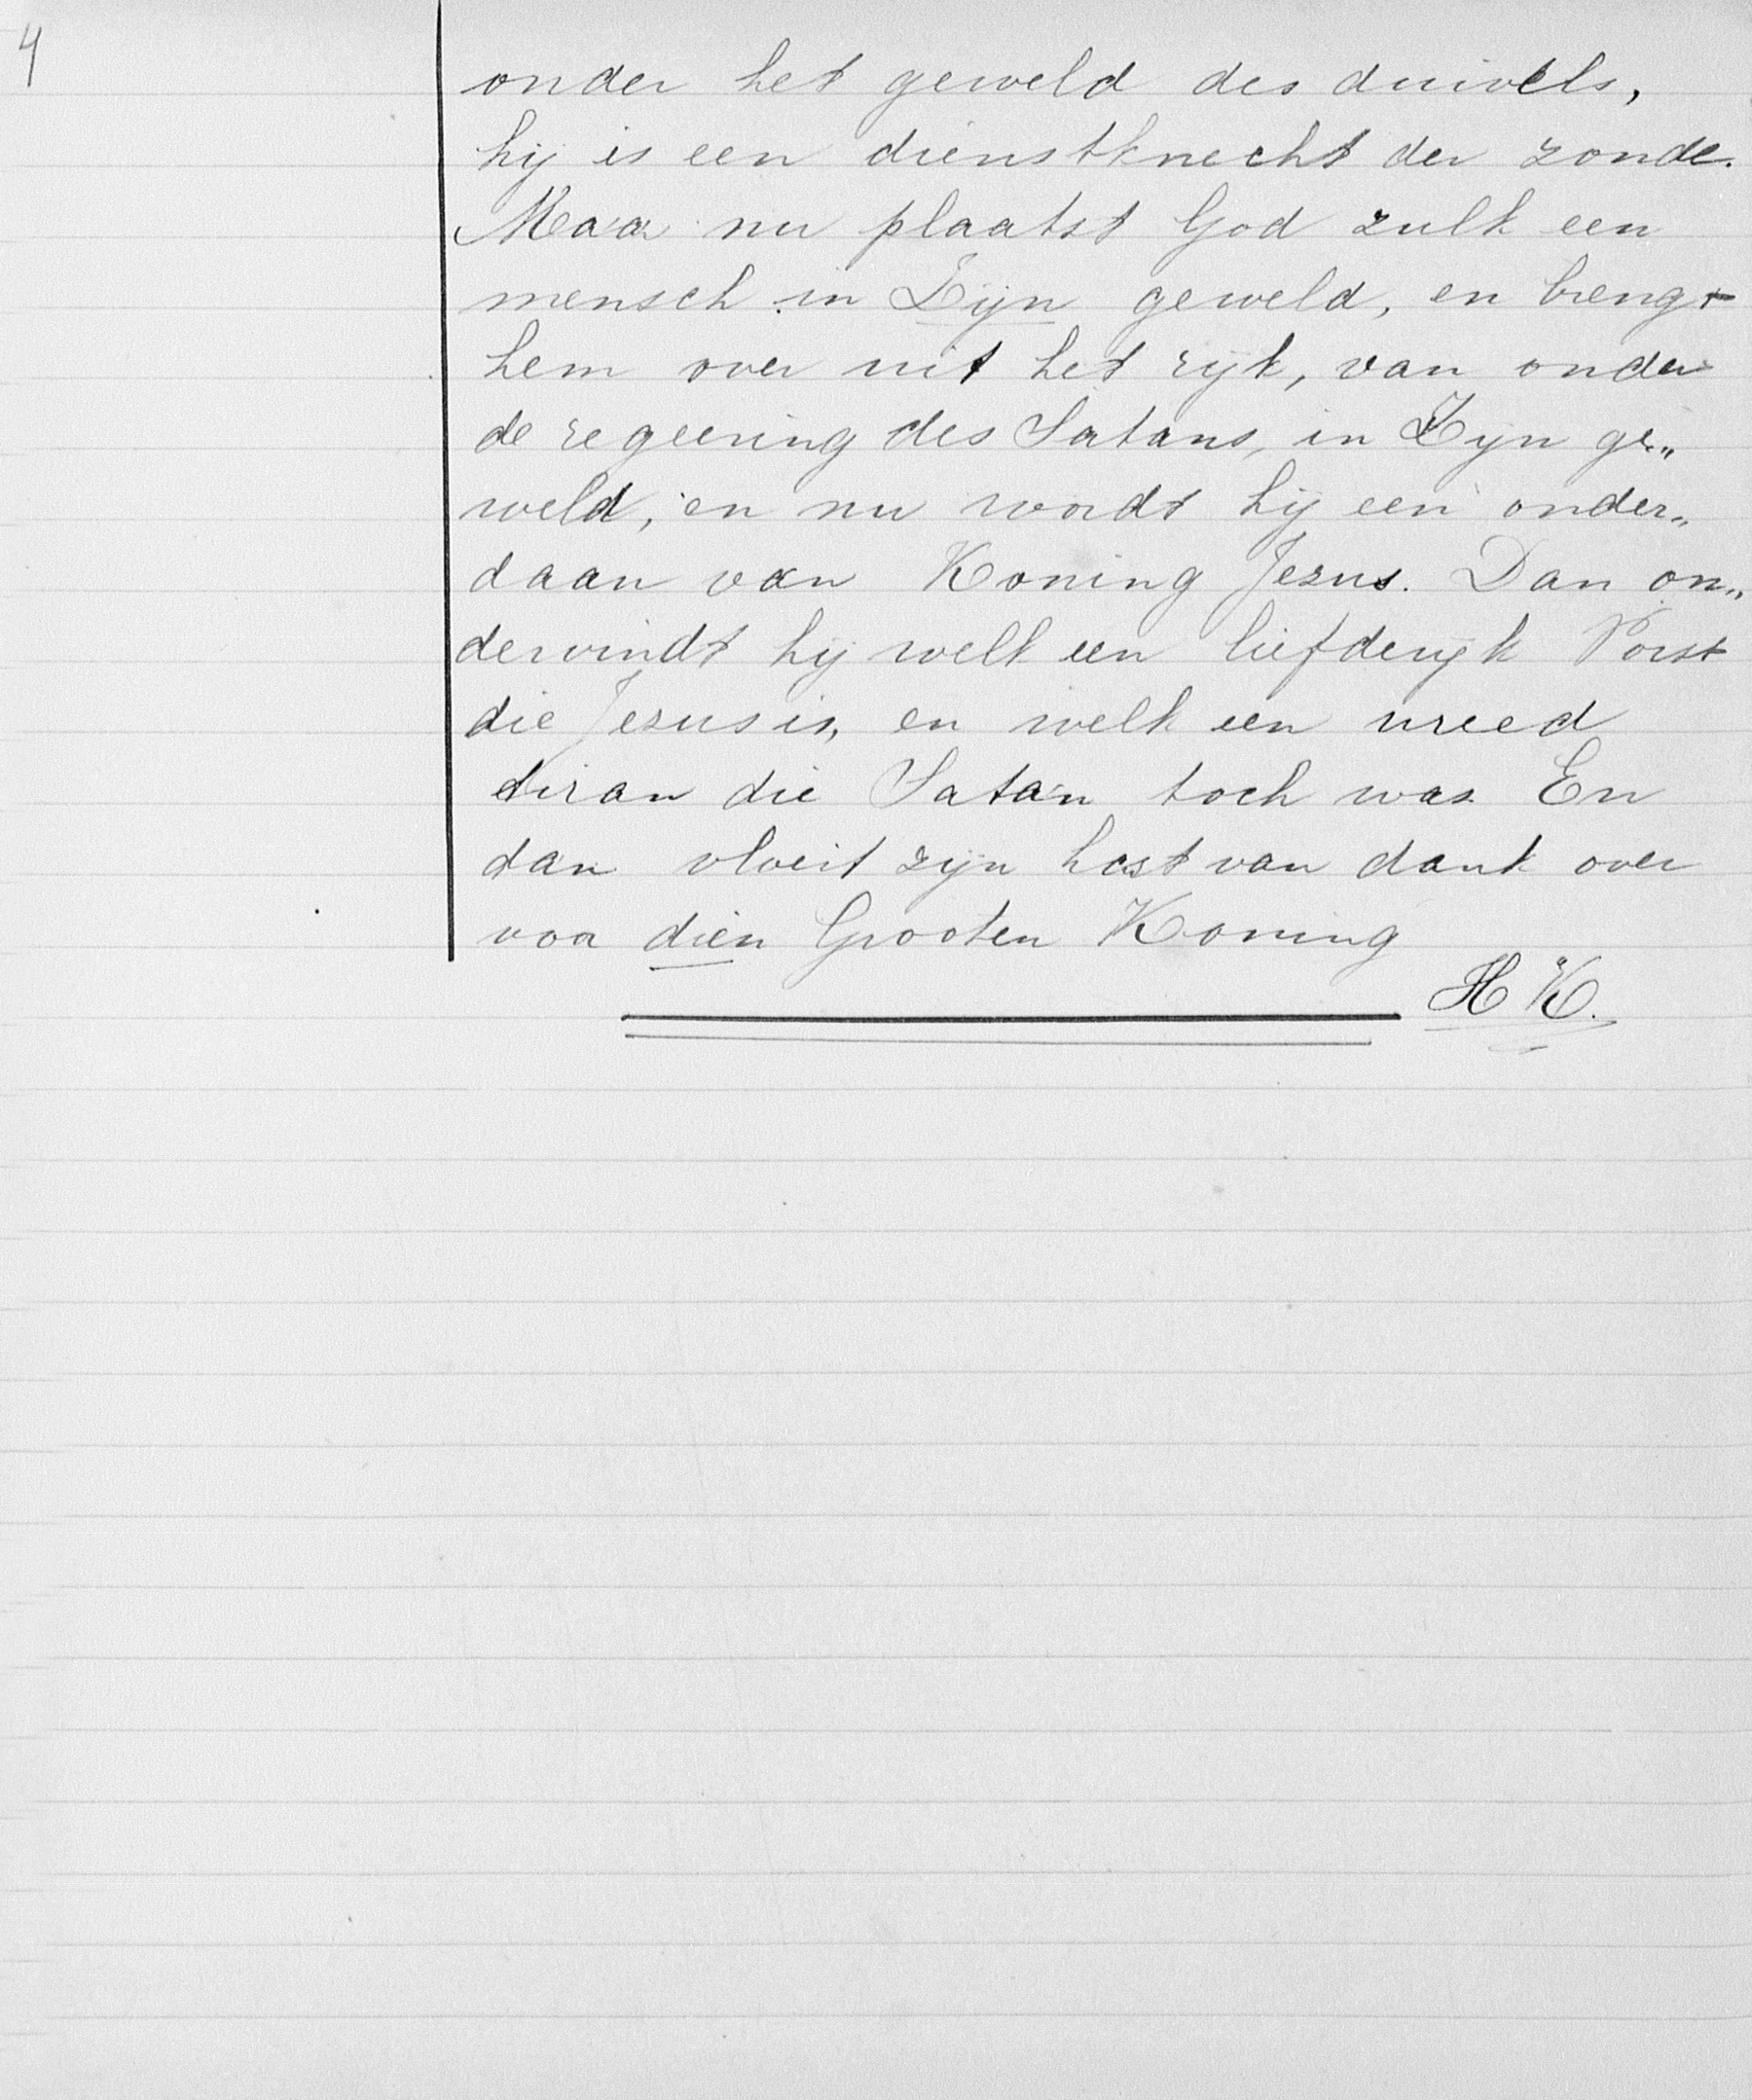 4
onder het geweld des duivels,
hij is een dienstknecht der zonde.
Maar nu plaatst God zulk een
mensch in Zijn geweld, en brengt
hem over uit het rijk, van onder
de regeering des Satans, in Zijn ge„
weld, en nu wordt hij een onder„
daan van Koning Jezus. Dan on„
dervindt hij welk een liefderijk Vorst
die Jezus is, en welk een wreed
tiran die Satan toch was. En
dan vloeit zijn hart van dank over
voor dien Grooten Koning
H K.